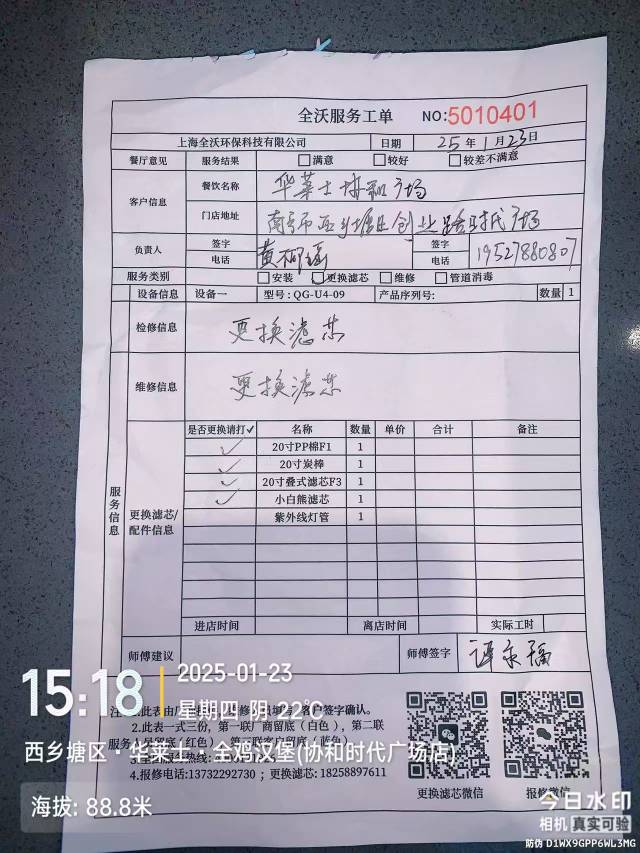 全沃服务工单 NO:5010401
上海全沃环保科技有限公司 日期 25年1月23日
餐厅意见 服务结果 满意 较好 较差不满意
客户信息 餐饮名称 华莱士协和广场
门店地址 南宁市西乡塘区创业路时代广场
负责人 签字 电话 黄 签字 电话 19527880807
服务类别 安装 更换滤芯 维修 管道消毒
设备信息 设备一 型号:QG-U4-09 产品序列号: 数量 1
检修信息 更换滤芯
维修信息 更换滤芯
服务信息 更换滤芯/配件信息
是否更换请打✓ 名称 数量 单价 合计 备注
✓ 20寸PP棉F1 1
✓ 20寸炭棒 1
✓ 20寸叠式滤芯F3 1
✓ 小白熊滤芯 1
紫外线灯管 1
进店时间 离店时间 实际工时
师傅建议 师傅签字 福
客户签字确认。
2.此表一式三份，第一联厂商留底(白色)，第二联
(红色) 留底(蓝色)
4.报修电话:13732292730；更换滤芯:18258897611
更换滤芯微信 报修微信
15:18 2025-01-23
星期四 阴 22℃
西乡塘区·华莱士·全鸡汉堡(协和时代广场店)
海拔: 88.8米
今日水印
相机 真实可验
防伪 D1WX9GPP6WL3MG